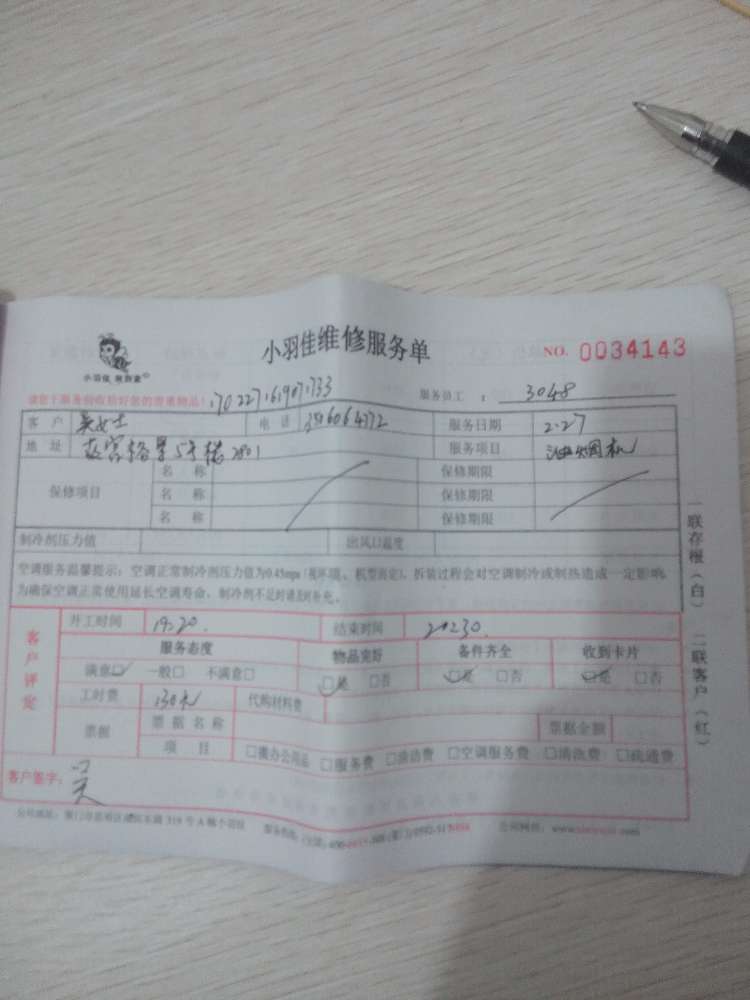 小羽佳维修服务单
NO. 0034143
小羽佳
服务员工 : 3048
客户 吴女士 电话 服务日期 2.27
地址 5号楼2801 服务项目 油烟机
保修项目 名称 保修期限
名称 保修期限
名称 保修期限
制冷剂压力值 出风口温度
空调服务温馨提示:空调正常制冷剂压力值为0.45mpa(视环境、机型而定),拆装过程会对空调制冷或制热造成一定影响,
为确保空调正常使用延长空调寿命,制冷剂不足时请及时补充。
客户评定
开工时间 19:20. 结束时间 20230.
服务态度 物品完好 备件齐全 收到卡片
满意☑ 一般□ 不满意□ ☑是 □否 ☑是 □否 ☑是 □否
工时费 130元 代购材料费
票据 票据名称 票据金额
项目 □搬办公用品 □服务费 □清洁费 □空调服务费 □清洗费 □疏通费
客户签字: 吴
一联存根(白) 二联客户(红)